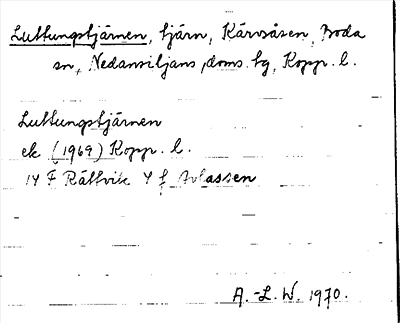 Luttungstjärnen, tjärn, Kårvsåsen, Boda
sn, Nedansiljans doms. tg, Kopp. l.
Luttungstjärnen
ek (1969) Kopp. l.
14 F Rättvik 4 f Avlassen
A.-L. W. 1970.